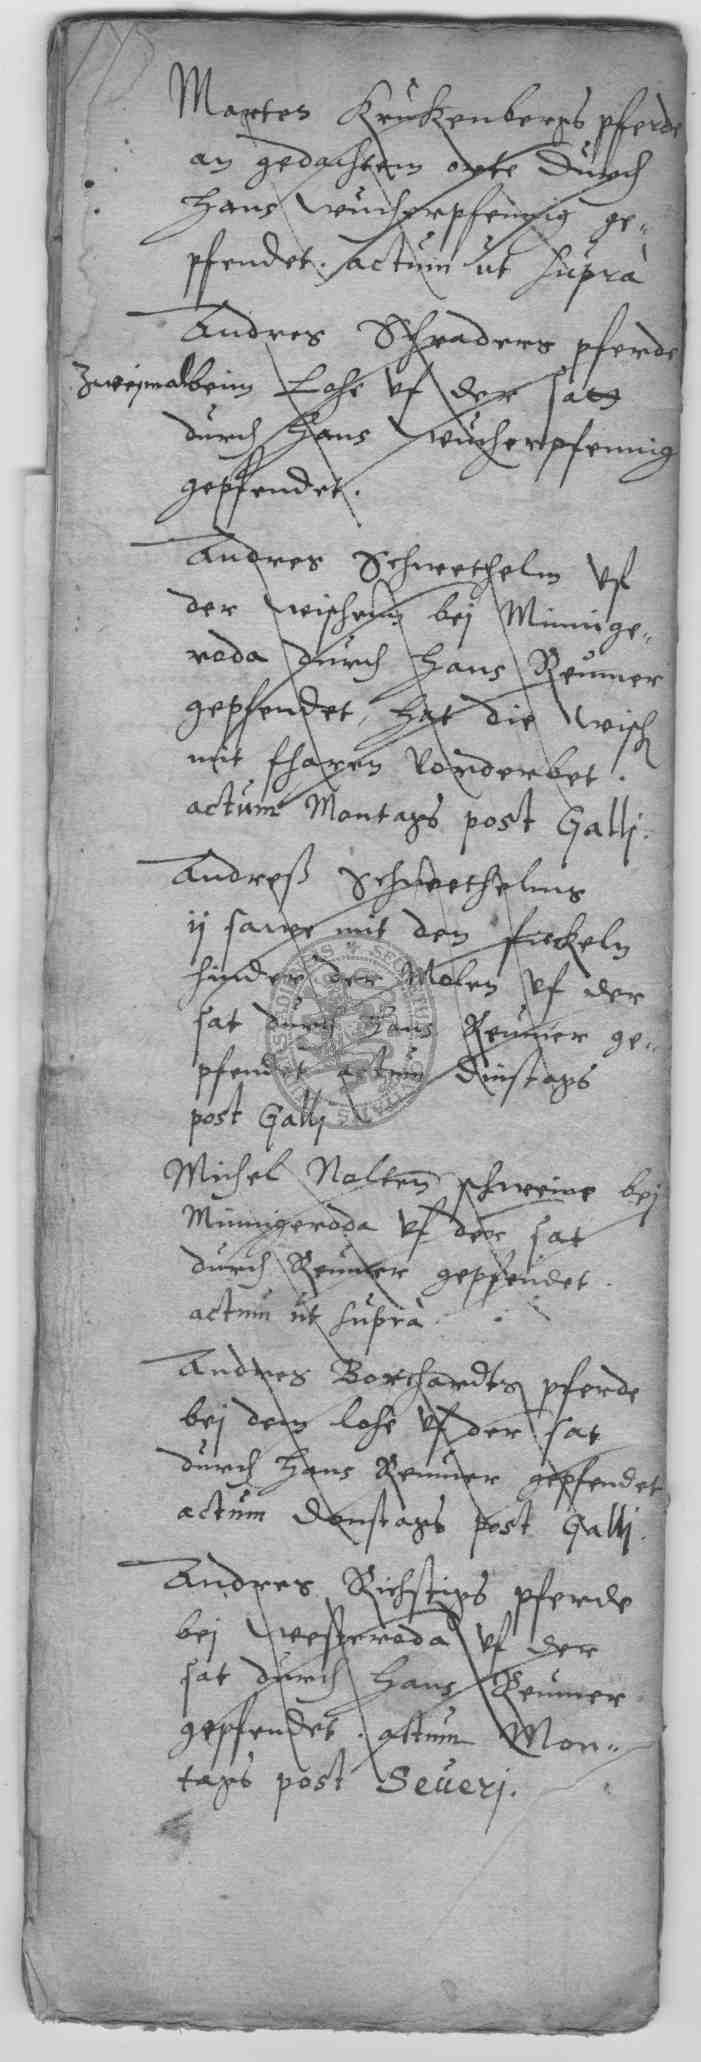 Marten Krukenbergs pferde
an gedachtem orte durch
Hans Wucherpfennig ge-
pfendet. actum ut supra
Andres Schraders pferde
Zweymal beim Lohe uf der sat
durch Hans Wucherpfennig
gepfendet.
Andres Schwethelm uf
der wischen bej Minnige-
roda durch Hans Reumer
gepfendet, hat die wisch
mit fharen vorderbet.
actum Montags post Galli.
Andreß Schwethelms
ij sawe mit den fickeln
hinder der Molen uf der
sat durch Hans Reumer ge-
pfendet actum Dinstags
post Galli
Michel Nolten schweine bej
Minnigeroda uf der sat
durch Reumer gepfendet.
actum ut supra
Andres Borchardts pferde
bej dem lohe uf der sat
durch Hans Reumer gepfendet
actum Donstags post Galli.
Andres Richstigs pferde
bej Westeroda uf der
sat durch Hans Reumer
gepfendet. actum Mon-
tags post Severj.